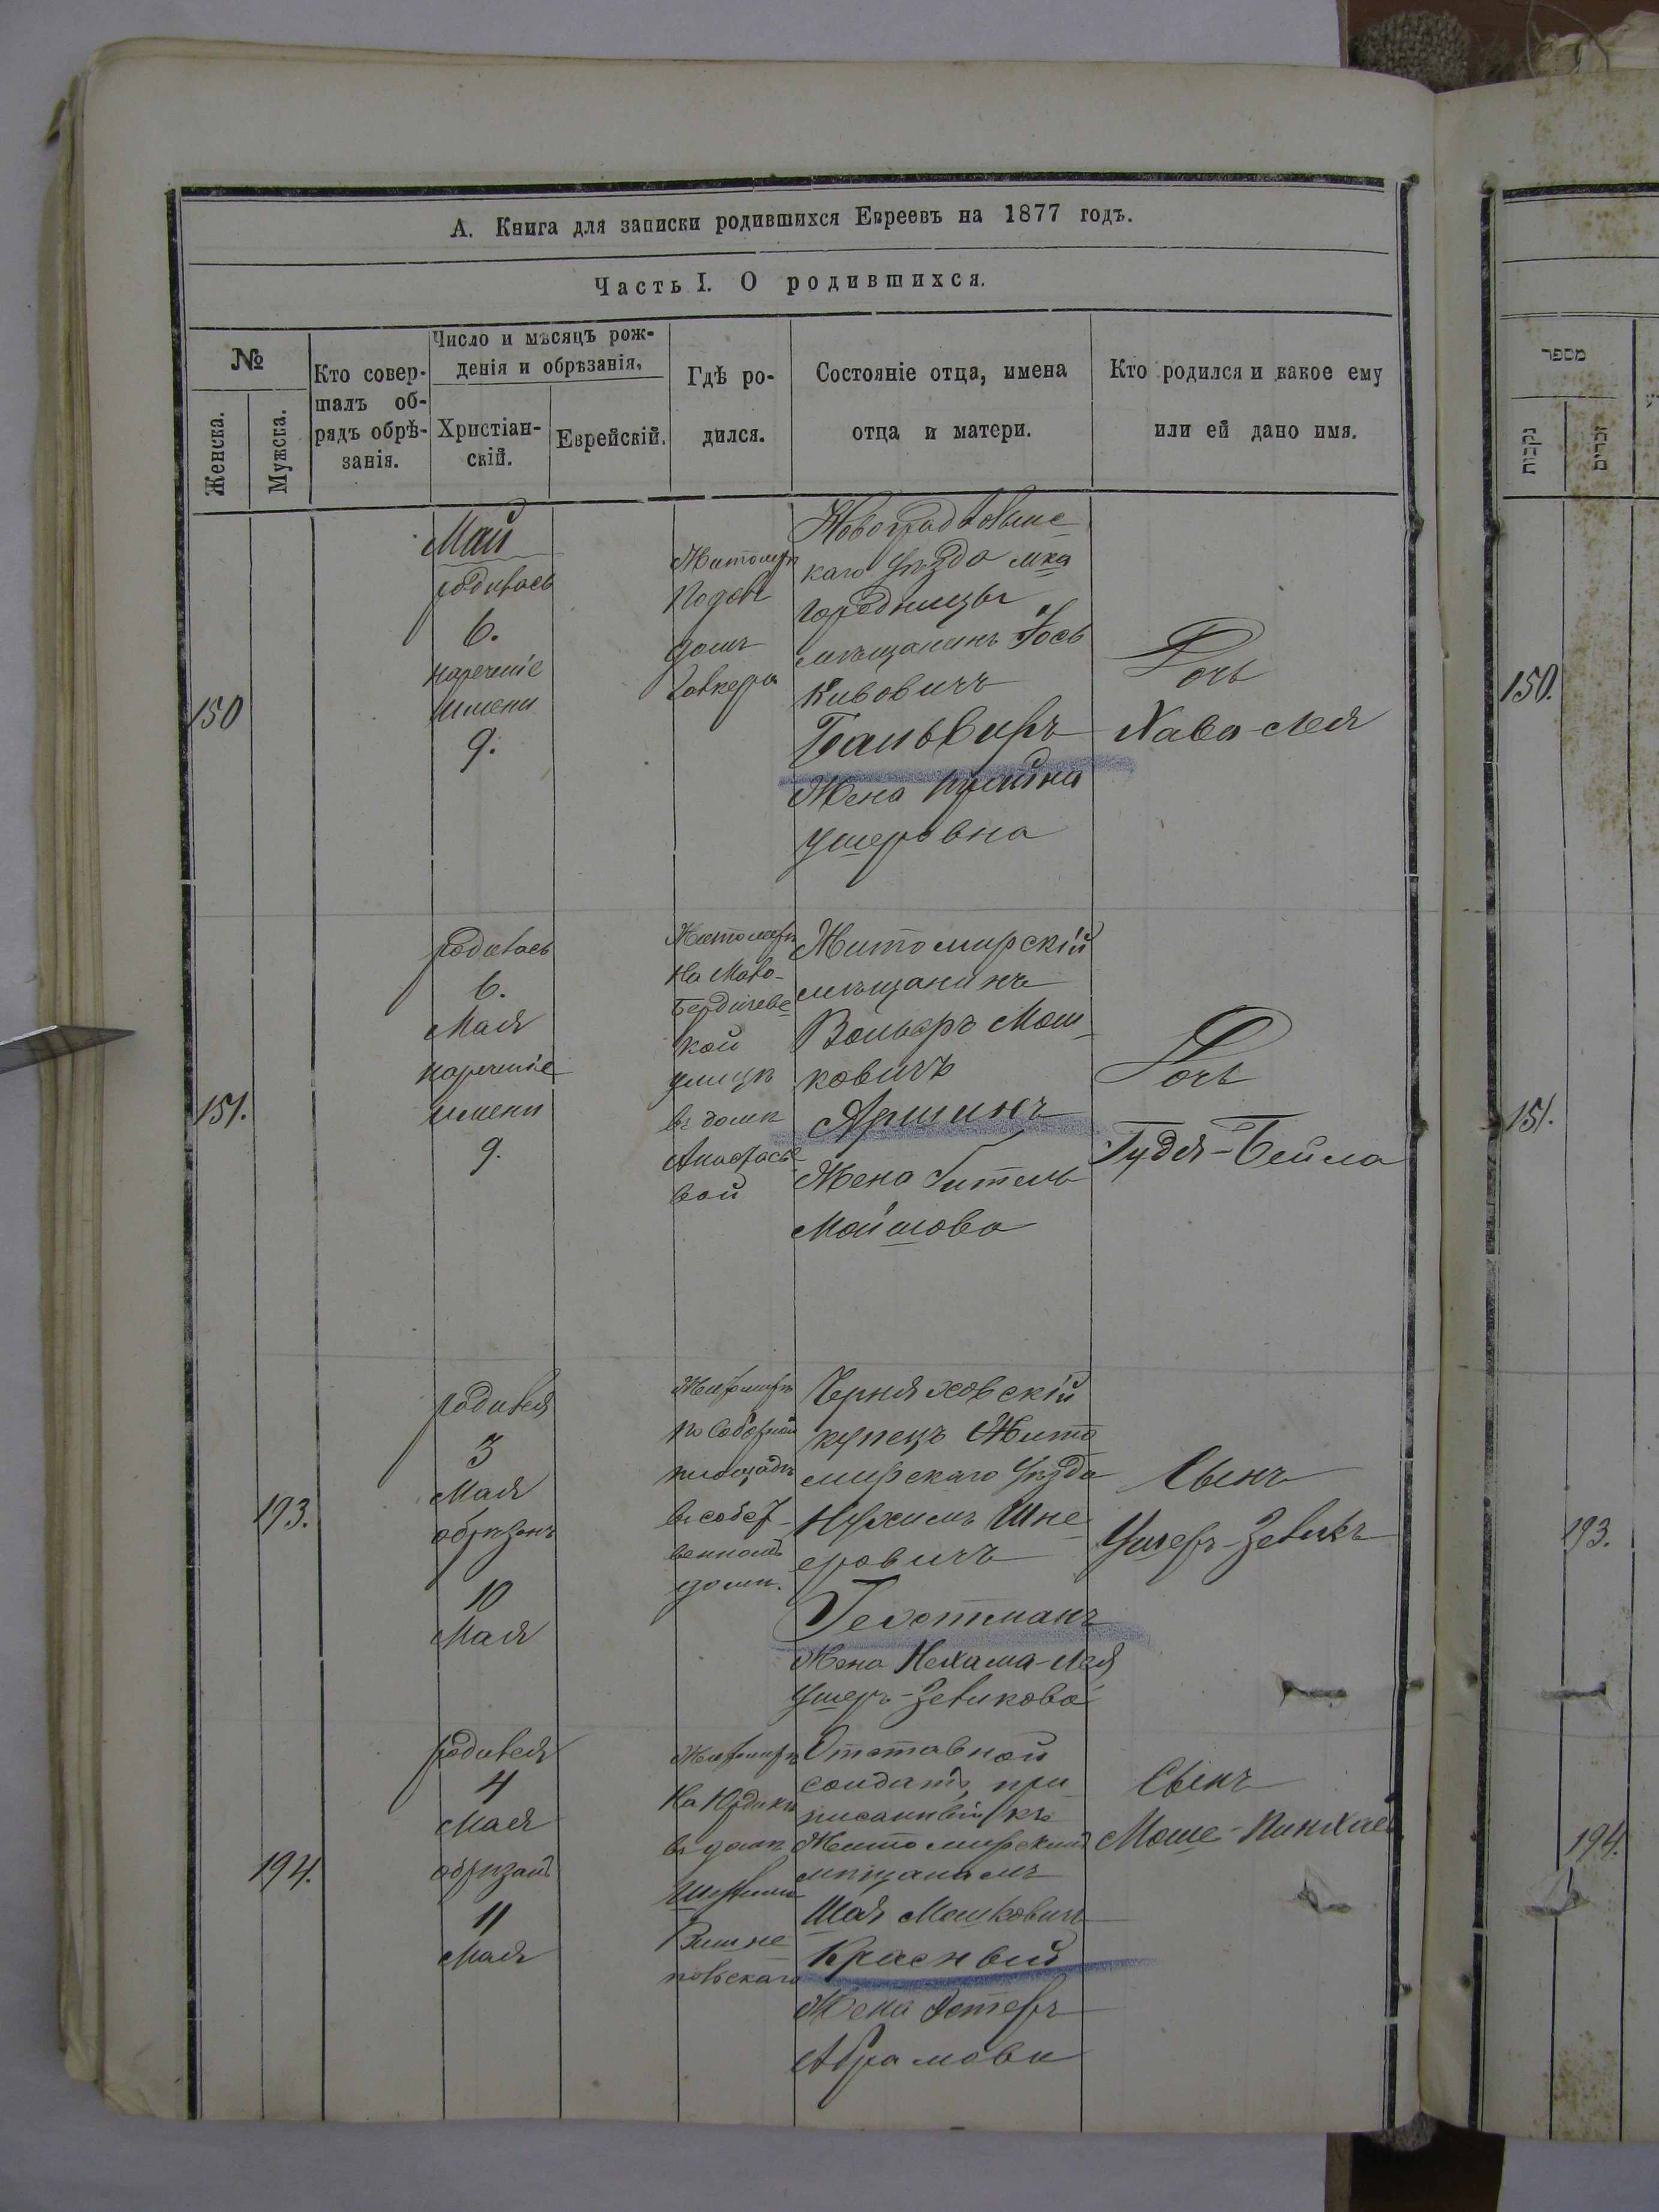 А. Книга для записки родившихся Евреевъ на 1877 годъ.
Часть I. О родившихся.
№
Женска.
Мужска.
Кто совер-
шалъ об-
рядъ обрѣ-
занія.
Число и мѣсяцъ рож-
денія и обрѣзанія,
Христіан-
скій.
Еврейскій.
Гдѣ ро-
дился.
Состояніе отца, имена
отца и матери.
Кто родился и какое ему
или ей дано имя.
150
Май
родилась
6.
нареченіе
имени
9.
Житомиръ
домъ
Новоградволынс-
каго уѣзда мка
Городницы
мѣщанинъ Іось
Кивовичъ
Жена
Ушеровна
Дочь
Хава-Лея
151.
родилась
6.
Мая
нареченіе
имени
9.
Житомиръ
на Мало-
Бердичевс-
кой
улицѣ
въ домѣ
Житомирскій
мѣщанинъ
Вольфъ Мош-
ковичъ
Аршинъ
Жена Гитель
Мойшова
Дочь
Гудя-Бейла
193.
родился
3
Мая
обрѣзанъ
10
Мая
Житомиръ
по Соборной
площадѣ
въ собст-
венномъ
домѣ.
Черняховскій
купецъ Жито
мирскаго уѣзда
Нухимъ Шне-
еровичъ
Гехтманъ
Жена Нехама-Лея
Ушеръ-Зеликова
Сынъ
Ушеръ-Зеликъ
194.
родился
4
Мая
обрѣзанъ
11
Мая
Житомиръ
въ домѣ
Отставной
солдатъ, при
писанный къ
Житомирскимъ
мѣщанамъ
Шая Мошковичъ
Красный
Жена Эстеръ
Абрамова
Сынъ
Моше-Пинхас
מספר
נקבות
זכרים
150.
151.
193.
194.